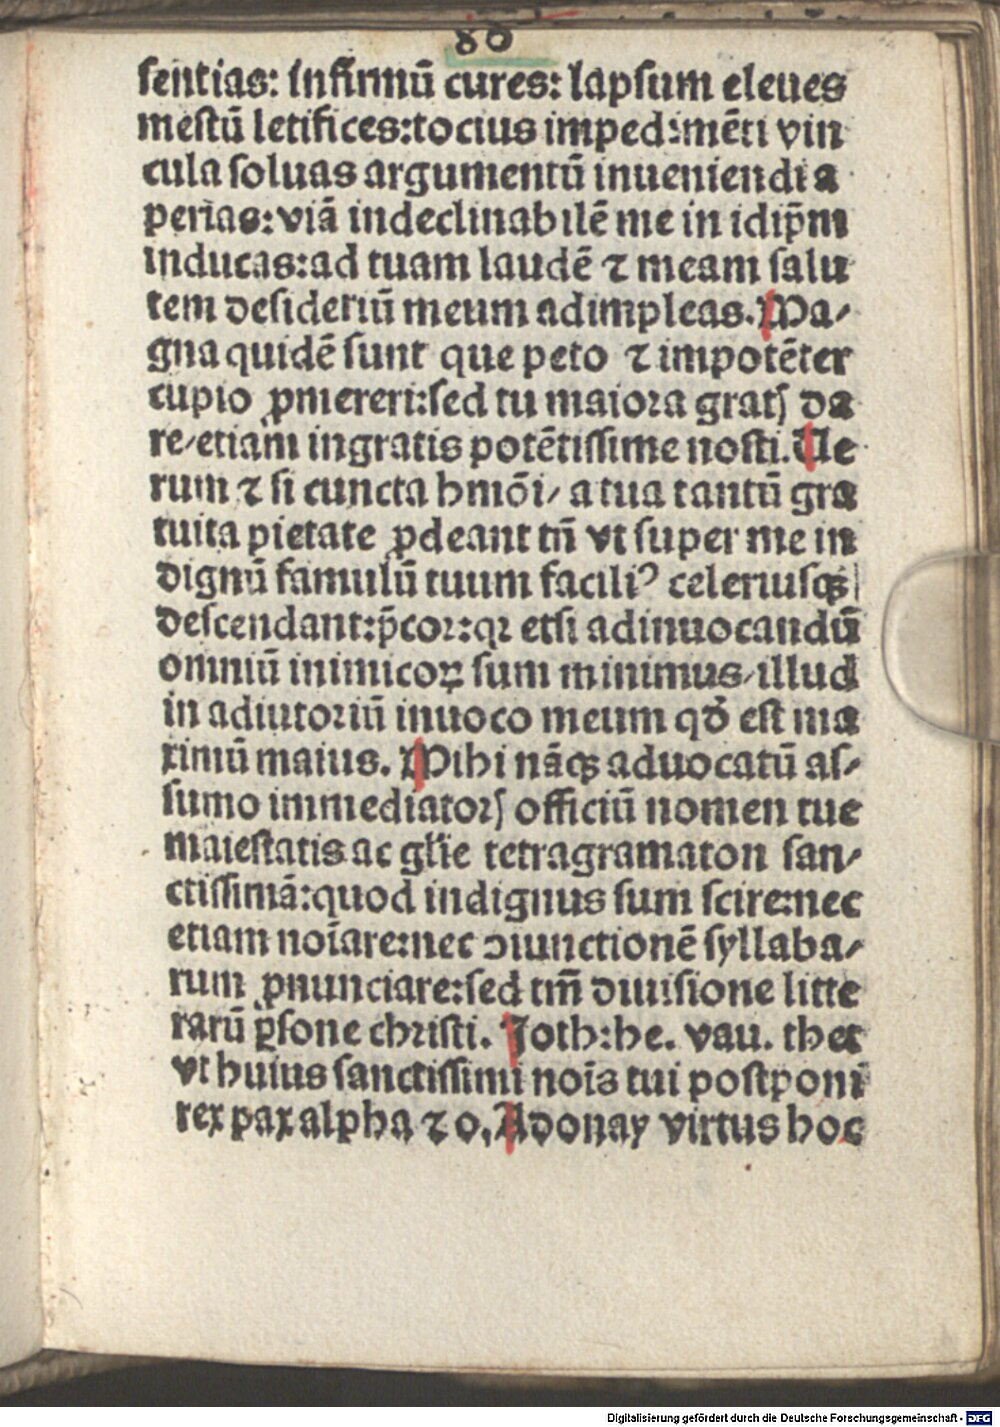 80
sentias: infirmū cures: lapsum eleues
mestū letifices: tocius impedimēti vin
cula soluas argumentū inueniendi a
perias: viā indeclinabilē me in idip̄m
inducas: ad tuam laudē ⁊ meam salu
tem desideriū meum adimpleas. Ma/
gna quidē sunt que peto ⁊ impotēter
cupio ꝓmereri: sed tu maiora gratꝭ da
re/etiam ingratis potētissime nosti. Ue
rum ⁊ si cuncta hmōi/ a tua tantū gra
tuita pietate ꝓdeant tn̄ vt super me in
dignū famulū tuum faciliꝰ celeriusqꝫ
descendant: p̄cor: qꝛ etsi ad inuocandū
omniū inimicoꝝ sum minimus/illud
in adiutoriū inuoco meum qđ est ma
ximū maius. Mihi nāqꝫ aduocatū as/
sumo immediatorꝭ officiū nomen tue
maiestatis ac gl̄ie tetragramaton san/
ctissimā: quod indignus sum scire: nec
etiam noīare: nec ↄiunctionē syllaba/
rum ꝓnunciare: sed tm̄ diuisione litte
rarū ꝑsone christi. Joth: he. vau. thet
vt huius sanctissimi noīs tui postponi
rex pax alpha ⁊ o, Adonay virtus hoc
Digitalisierung gefördert durch die Deutsche Forschungsgemeinschaft - DFG